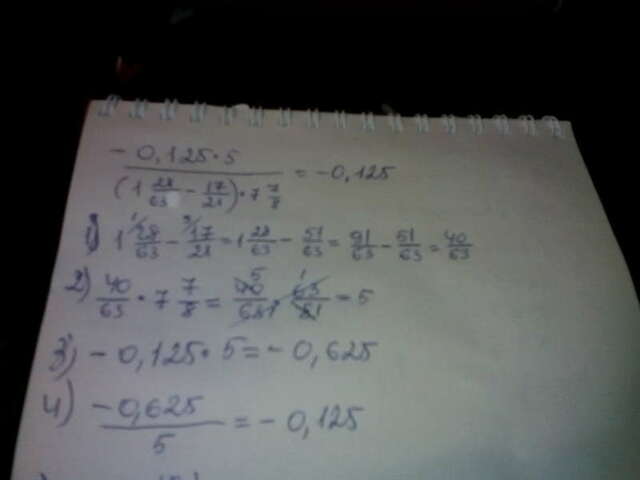 - 0,125 · 5 / (1 28/63 - 17/21) · 7 7/8 = -0,125
1) 1 28/63 - 17/21 = 1 28/63 - 51/63 = 91/63 - 51/63 = 40/63
2) 40/63 · 7 7/8 = 40/63 · 63/8 = 5
3) - 0,125 · 5 = - 0,625
4) -0,625 / 5 = - 0,125